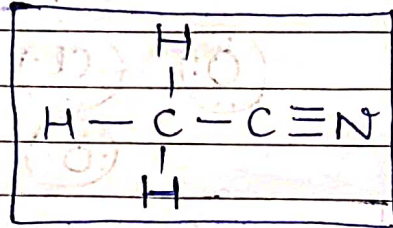 H
H — C — C ≡ N
H